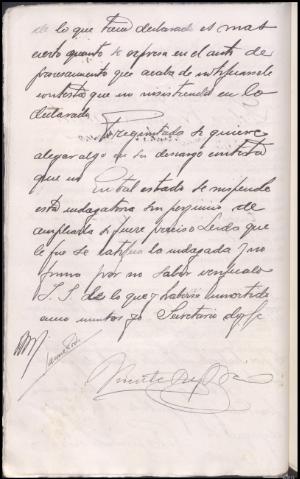 de lo que tiene declarado es mas
cierto cuanto se espresa en el auto de
procesamiento que acaba de notificarsele
contesta que no insistiendo en lo
declarado
Preguntado si quiere
alegar algo en su descargo contesta
que no
En tal estado se suspende
esta indagatoria sin perjuicio de
ampliarla si fuere preciso Leida que
le fue se ratifica la indagada y no
firma por no saber
S. S. de lo que y haberse invertido
minutos yo Secretario doy fe
Vicente